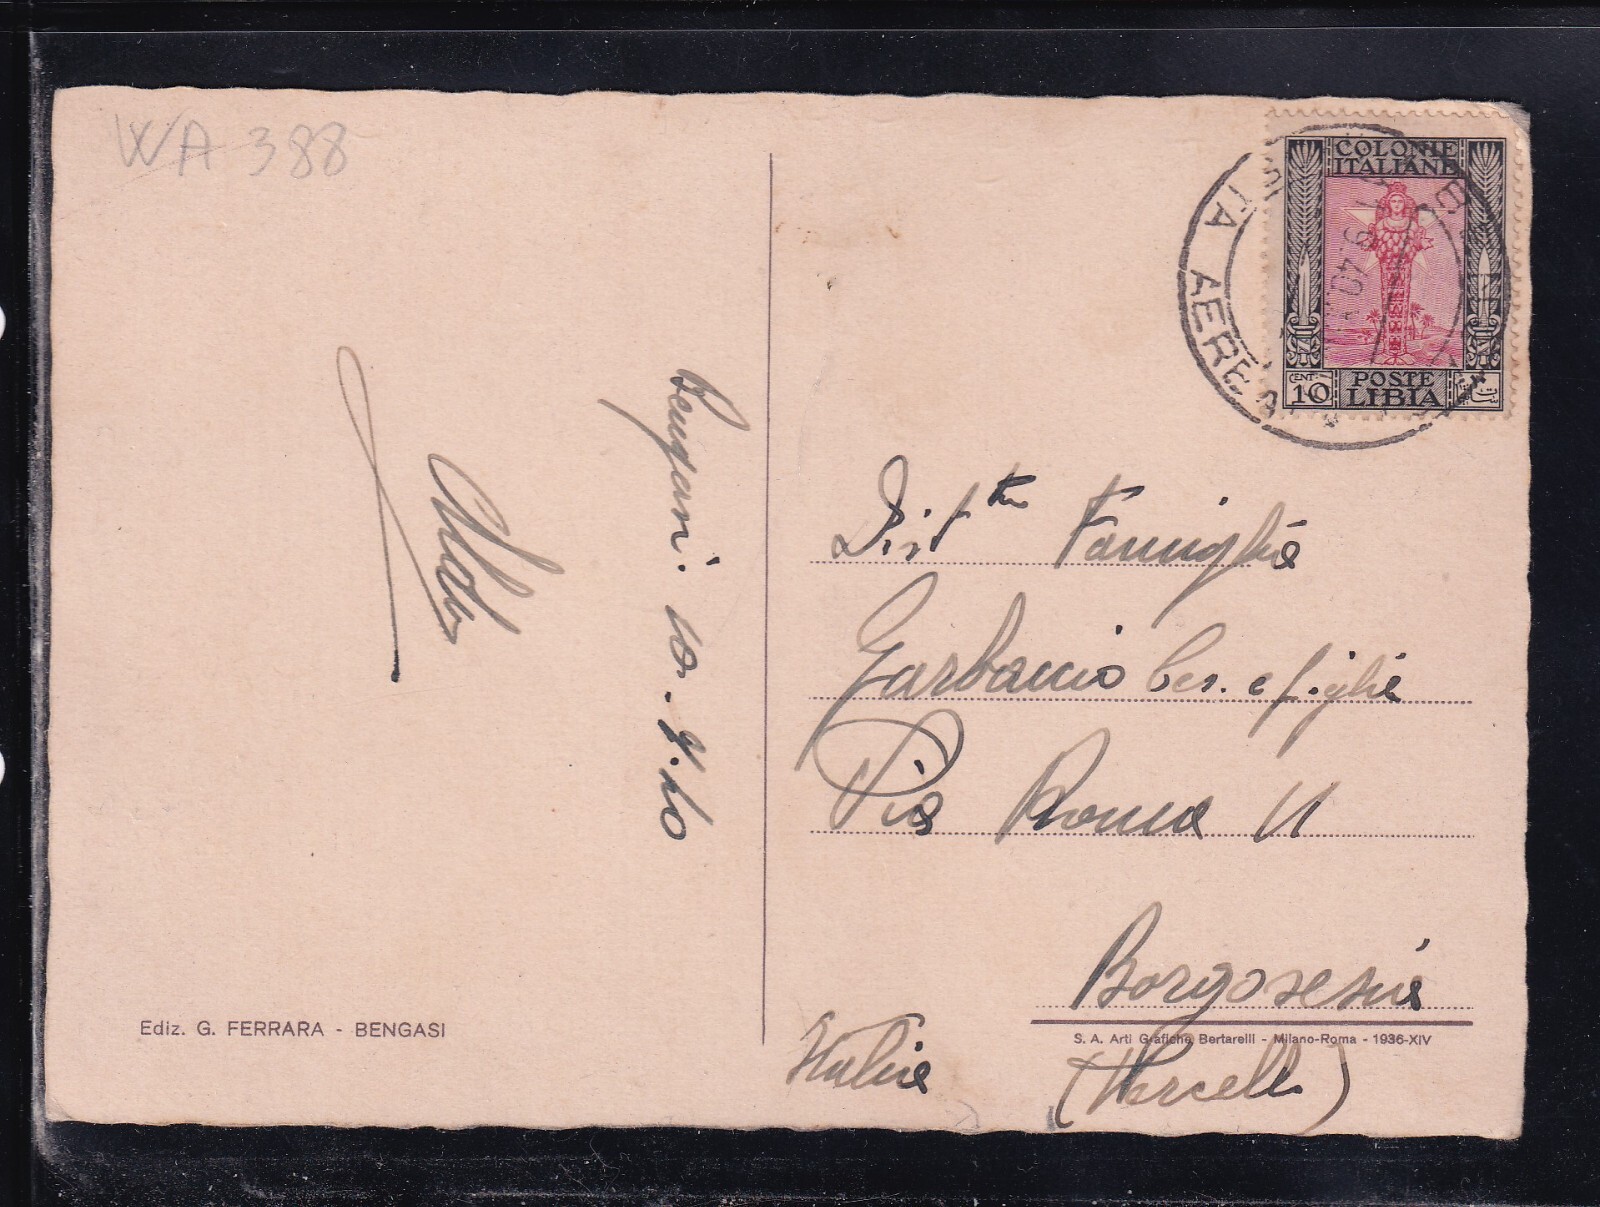 WA 388
COLONIE
ITALIANE
CENT 10
POSTE
LIBIA
TA AEREA
9 40
Bengasi. 10. 9. 40
Aldo
Dist.
Famiglia
Garbaccio Ces. e figlie
Via Roma 11
Borgosesia
(Vercelli)
Italia
Ediz. G. FERRARA - BENGASI
S. A. Arti Grafiche Bertarelli - Milano-Roma - 1936-XIV